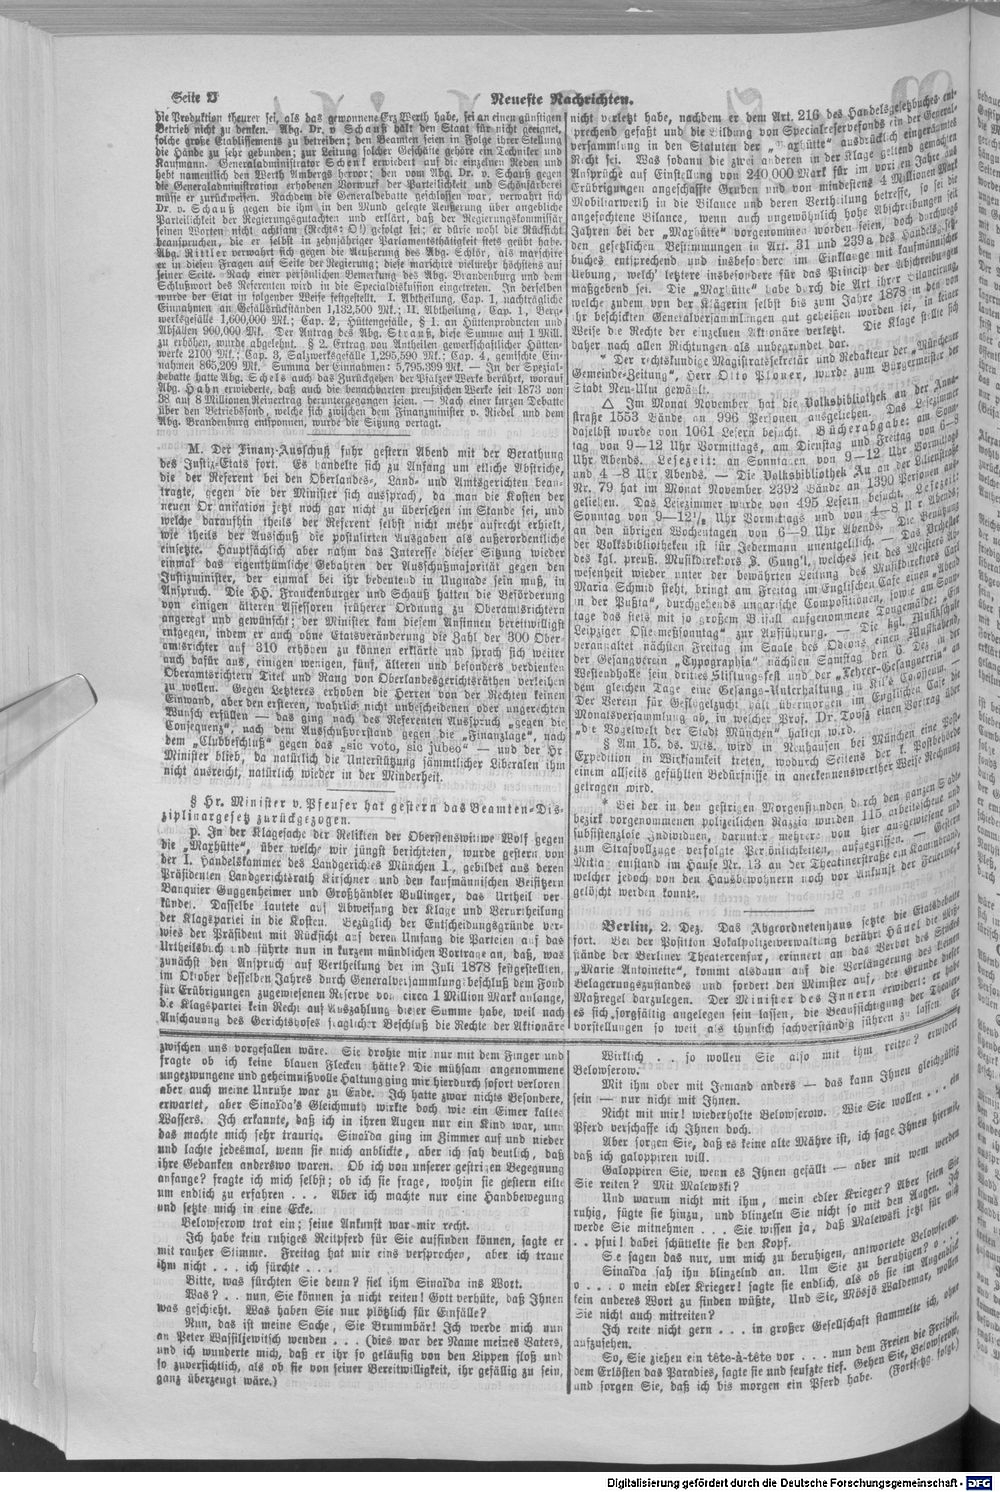 Seite 2
Neueste Nachrichten.
die Produktion theurer sei, als das gewonnene Erz Werth habe, sei an einen günstigen
Betrieb nicht zu denken. Abg. Dr. v Schauß hält den Staat für nicht geeignet,
solche große Etablissements zu betreiben; den Beamten seien in Folge ihrer Stellung
die Hände zu sehr gebunden; zur Leitung solcher Geschäfte gehöre ein Techniker und
Kaufmann. Generaladministrator Schenk erwiedert auf die einzelnen Reden und
hebt namentlich den Werth Ambergs hervor; den vom Abg. Dr. v. Schauß gegen
die Generaladministration erhobenen Vorwurf der Parteilichkeit und Schönfärberei
müsse er zurückweisen. Nachdem die Generaldebatte geschlossen war, verwahrt sich
Dr. v. Schauß gegen die ihm in den Mund gelegte Aeußerung über angebliche
Parteilichkeit der Regierungsgutachten und erklärt, daß der Regierungskommissär
seinen Worten nicht achtsam (Rechts: O!) gefolgt sei; er dürfe wohl die Rücksicht
beanspruchen, die er selbst in zehnjähriger Parlamentsthätigkeit stets geübt habe.
Abg. Rittler verwahrt sich gegen die Aeußerung des Abg. Schlör, als marschire
er in diesen Fragen auf Seite der Regierung; diese marschire vielmehr höchstens auf
seiner Seite. Nach einer persönlichen Bemerkung des Abg. Brandenburg und dem
Schlußwort des Referenten wird in die Spezialdiskussion eingetreten. In derselben
wurde der Etat in folgender Weise festgestellt. I. Abtheilung, Cap. 1, nachträgliche
Einnahmen an Gefällsrückständen 1,132,500 Mk.; II. Abtheilung, Cap. 1, Berg-
werksgefälle 1,600,000 Mk.; Cap. 2, Hüttengefälle, § 1. an Hüttenproducten und
Abfällen 960,000 Mk. Der Antrag des Abg. Strauß, diese Summe auf 1 Mill.
zu erhöhen, wurde abgelehnt. § 2. Ertrag von Antheilen gewerkschaftlicher Hütten-
werke 2100 Mk.; Cap. 3, Salzwerksgefälle 1,295,590 Mk.; Cap. 4, gemischte Ein-
nahmen 865,209 Mk. Summa der Einnahmen: 5,795,399 Mk. — In der Spezial-
debatte hatte Abg. Schels auch das Zurückgehen der Pfälzer Werke berührt, worauf
Abg. Hahn erwiederte, daß auch die benachbarten preußischen Werke seit 1873 von
38 auf 8 Millionen Reinertrag heruntergegangen seien. — Nach einer kurzen Debatte
über den Betriebsfond, welche sich zwischen dem Finanzminister v. Riedel und dem
Abg. Brandenburg entsponnen, wurde die Sitzung vertagt.
M. Der Finanz-Ausschuß fuhr gestern Abend mit der Berathung
des Justiz-Etats fort. Es handelte sich zu Anfang um etliche Abstriche,
die der Referent bei den Oberlandes-, Land- und Amtsgerichten bean-
tragte, gegen die der Minister sich aussprach, da man die Kosten der
neuen Organisation jetzt noch gar nicht zu übersehen im Stande sei, und
welche daraufhin theils der Referent selbst nicht mehr aufrecht erhielt,
wie theils der Ausschuß die postulirten Ausgaben als außerordentliche
einsetzte. Hauptsächlich aber nahm das Interesse dieser Sitzung wieder
einmal das eigenthümliche Gebahren der Ausschußmajorität gegen den
Justizminister, der einmal bei ihr bedeutend in Ungnade sein muß, in
Anspruch. Die HH. Franckenburger und Schauß hatten die Beförderung
von einigen älteren Assessoren früherer Ordnung zu Oberamtsrichtern
angeregt und gewünscht; der Minister kam diesem Ansinnen bereitwilligst
entgegen, indem er auch ohne Etatsveränderung die Zahl der 300 Ober-
amtsrichter auf 310 erhöhen zu können erklärte und sprach sich weiter
auch dafür aus, einigen wenigen, fünf, älteren und besonders verdienten
Oberamtsrichtern Titel und Rang von Oberlandesgerichtsräthen verleihen
zu wollen. Gegen Letzteres erhoben die Herren von der Rechten keinen
Einwand, aber den ersteren, wahrlich nicht unbescheidenen oder ungerechten
Wunsch erfüllen — das ging nach des Referenten Ausspruch „gegen die
Consequenz“, nach dem Ausschußvorstand gegen die „Finanzlage“, nach
dem „Clubbeschluß“ gegen das „sic voto, sic jubeo“ — und der Hr
Minister blieb, da natürlich die Unterstützung sämmtlicher Liberalen ihm
nicht ausreicht, natürlich wieder in der Minderheit.
§ Hr. Minister v. Pfeufer hat gestern das Beamten-Dis-
ziplinargesetz zurückgezogen.
p. In der Klagesache der Relikten der Oberstenswittwe Wolf gegen
die „Maxhütte“, über welche wir jüngst berichteten, wurde gestern von
der I. Handelskammer des Landgerichtes München I., gebildet aus deren
Präsidenten Landgerichtsrath Kirschner und den kaufmännischen Beisitzern
Banquier Guggenheimer und Großhändler Bullinger, das Urtheil ver-
kündet. Dasselbe lautete auf Abweisung der Klage und Verurtheilung
der Klagspartei in die Kosten. Bezüglich der Entscheidungsgründe ver-
wies der Präsident mit Rücksicht auf deren Umfang die Parteien auf das
Urtheilsbuch und führte nun in kurzem mündlichen Vortrage an, daß, was
zunächst den Anspruch auf Vertheilung der im Juli 1878 festgestellten,
im Oktober desselben Jahres durch Generalversammlungsbeschluß dem Fond
für Erübrigungen zugewiesenen Reserve von circa 1 Million Mark anlange,
die Klagspartei kein Recht auf Auszahlung dieser Summe habe, weil nach
Anschauung des Gerichtshofes fraglicher Beschluß die Rechte der Aktionäre
nicht verletzt habe, nachdem er dem Art. 216 des Handelsgesetzbuches ent-
sprechend gefaßt und die Bildung von Specialreservefonds in der General-
versammlung in den Statuten der „Maxhütte“ ausdrücklich eingeräumtes
Recht sei. Was sodann die zwei anderen in der Klage geltend gemachten
Ansprüche auf Einstellung von 240 000 Mark für im vorigen Jahre aus
Erübrigungen angeschaffte Gruben und von mindestens 4 Millionen Mark
Mobiliarwerth in die Bilance und deren Vertheilung betreffe, so sei die
angefochtene Bilance, wenn auch ungewöhnlich hohe Abschreibungen seit
Jahren bei der „Maxhütte“ vorgenommen worden seien, doch durchwegs
den gesetzlichen Bestimmungen in Art. 31 und 239a des Handelsgesetz-
buches entsprechend und insbesondere im Einklange mit kaufmännischer
Uebung, welch' letztere insbesondere für das Princip der Abschreibungen
maßgebend sei. Die „Maxhütte“ habe durch die Art ihrer Bilancirung,
welche zudem von der Klägerin selbst bis zum Jahre 1878 in den von
ihr beschickten Generalversammlungen gut geheißen worden sei, in keiner
Weise die Rechte der einzelnen Aktionäre verletzt. Die Klage stelle sich
daher nach allen Richtungen als unbegründet dar.
* Der rechtskundige Magistratssekretär und Redakteur der „Münchener
Gemeinde-Zeitung“, Herr Otto Ploner, wurde zum Bürgermeister der
Stadt Neu-Ulm gewählt.
△ Im Monat November hat die Volksbibliothek an der Anna-
straße 1553 Bände an 996 Personen ausgeliehen. Das Lesezimmer
daselbst wurde von 1061 Lesern besucht. Bücherabgabe: am Sonn-
tag von 9—12 Uhr Vormittags, am Dienstag und Freitag von 6—8
Uhr Abends. Lesezeit: an Sonntagen von 9—12 Uhr Vormittags
und 4—8 Uhr Abends. — Die Volksbibliothek Au an der Lilienstraße
Nr. 79 hat im Monat November 2392 Bände an 1390 Personen aus-
geliehen. Das Lesezimmer wurde von 495 Lesern besucht. Lesezeit:
Sonntag von 9—12½ Uhr Vormittags und von 4—8 Uhr Abends;
an den übrigen Wochentagen von 6—9 Uhr Abends. Die Benützung
der Volksbibliotheken ist für Jedermann unentgeltlich. — Das Orchester
des kgl. preuß. Musikdirektors J. Gung'l, welches seit des Meisters Ab-
wesenheit wieder unter der bewährten Leitung des Musikdirektors Carl
Maria Schmid steht, bringt am Freitag im Englischen Café einen „Abend
in der Pußta“, durchgehends ungarische Compositionen, sowie am Sonn-
tage das stets mit so großem Beifall aufgenommene Tongemälde: „Ein
Leipziger Ostermeßsonntag“ zur Aufführung. — Die kgl. Musikschule
veranstaltet nächsten Freitag im Saale des Odeons einen Musikabend,
der Gesangverein „Typographia“ nächsten Samstag den 6. Dez. in der
Westendhalle sein drittes Stiftungsfest und der „Lehrer-Gesangverein“ an
dem gleichen Tage eine Gesangs-Unterhaltung in Kil's Colosseum. —
Der Verein für Geflügelzucht hält übermorgen im Englischen Café die
Monatsversammlung ab, in welcher Prof. Dr. einen Vortrag über
„die Vogelwelt der Stadt München“ halten wird.
§ Am 15. ds. Mts. wird in Neuhausen bei München eine Post-
Expedition in Wirksamkeit treten, wodurch Seitens der k. Postbehörde
einem allseits gefühlten Bedürfnisse in anerkennenswerther Weise Rechnung
getragen wird.
* Bei der in den gestrigen Morgenstunden durch den ganzen Stadt-
bezirk vorgenommenen polizeilichen Razzia wurden 115 arbeitsscheue und
subsistenzlose Individuen, darunter mehrere von hier ausgewiesene und
zum Strafvollzuge verfolgte Persönlichkeiten, aufgegriffen. — Gestern
Mittag entstand im Hause Nr. 13 an der Theatinerstraße ein Kaminbrand,
welcher jedoch von den Hausbewohnern noch vor Ankunft der Feuerwehr
gelöscht werden konnte.
Berlin, 2. Dez. Das Abgeordnetenhaus setzte die Etatsdebatte
fort. Bei der Position Lokalpolizeiverwaltung berührt Hänel die Miß-
stände der Berliner Theatercensur, erinnert an das Verbot des Stückes
„Marie Antoinette“, kommt alsdann auf die Verlängerung des kleinen
Belagerungszustandes und fordert den Minister auf, die Gründe dieser
Maßregel darzulegen. Der Minister des Innern erwidert: er habe
es sich sorgfältig angelegen sein lassen, die Beaufsichtigung der Theater-
vorstellungen so weit als thunlich sachverständig führen zu lassen. Er
zwischen uns vorgefallen wäre. Sie drohte mir nur mit dem Finger und
fragte ob ich keine blauen Flecken hätte? Die mühsam angenommene
ungezwungene und geheimnißvolle Haltung ging mir hierdurch sofort verloren
aber auch meine Unruhe war zu Ende. Ich hatte zwar nichts Besondere,
erwartet, aber Sinaïda's Gleichmuth wirkte doch wie ein Eimer kaltes
Wassers. Ich erkannte, daß ich in ihren Augen nur ein Kind war, und
das machte mich sehr traurig. Sinaïda ging im Zimmer auf und nieder
und lachte jedesmal, wenn sie mich anblickte, aber ich sah deutlich, daß
ihre Gedanken anderswo waren. Ob ich von unserer gestrigen Begegnung
anfange? fragte ich mich selbst; ob ich sie frage, wohin sie gestern eilte
um endlich zu erfahren . . . Aber ich machte nur eine Handbewegung
und setzte mich in eine Ecke.
Belowserow trat ein; seine Ankunft war mir recht.
Ich habe kein ruhiges Reitpferd für Sie auffinden können, sagte er
mit rauher Stimme. Freitag hat mir eins versprochen, aber ich traue
ihm nicht . . . ich fürchte . . .
Bitte, was fürchten Sie denn? fiel ihm Sinaïda ins Wort.
Was? . . nun, Sie können ja nicht reiten! Gott verhüte, daß Ihnen
was geschieht. Was haben Sie nur plötzlich für Einfälle?
Nun, das ist meine Sache, Sie Brummbär! Ich werde mich nun
an Peter Wassiljewitsch wenden . . . (dies war der Name meines Vaters,
und ich wunderte mich, daß er ihr so geläufig von den Lippen floß und
so zuversichtlich, als ob sie von seiner Bereitwilligkeit, ihr gefällig zu sein,
ganz überzeugt wäre.)
Wirklich . . so wollen Sie also mit ihm reiten? erwidert
Belowserow.
Mit ihm oder mit Jemand anders — das kann Ihnen gleichgültig
sein — nur nicht mit Ihnen.
Nicht mit mir! wiederholte Belowserow. Wie Sie wollen . . . ein
Pferd verschaffe ich Ihnen doch.
Aber sorgen Sie, daß es keine alte Mähre ist, ich sage Ihnen hiermit,
daß ich galoppiren will.
Galoppiren Sie, wenn es Ihnen gefällt — aber mit wem werden
Sie reiten? Mit Malewski?
Und warum nicht mit ihm, mein edler Krieger? Aber seien Sie
ruhig, fügte sie hinzu, und blinzeln Sie nicht so mit den Augen. Ich
werde Sie mitnehmen . . . Sie wissen ja, daß Malewski jetzt für mich
. . pfui! dabei schüttelte sie den Kopf.
Sie sagen das nur, um mich zu beruhigen, antwortete Belowserow.
Sinaïda sah ihn blinzelnd an. Um Sie zu beruhigen? o . . .
o . . . o mein edler Krieger! sagte sie endlich, als ob sie im Augenblick
kein anderes Wort zu finden wüßte, Und Sie, Mösjö Waldemar, wollen
Sie nicht auch mitreiten?
Ich reite nicht gern . . . in großer Gesellschaft stammelte ich, ohne
aufzusehen.
So, Sie ziehen ein tête-à-tête vor . . . nun dem Freien die Freiheit,
dem Erlösten das Paradies, sagte sie und seufzte tief. Gehen Sie, Belowserow,
und sorgen Sie, daß ich bis morgen ein Pferd habe. (Fortsetzg. folgt.)
Digitalisierung gefördert durch die Deutsche Forschungsgemeinschaft - DFG